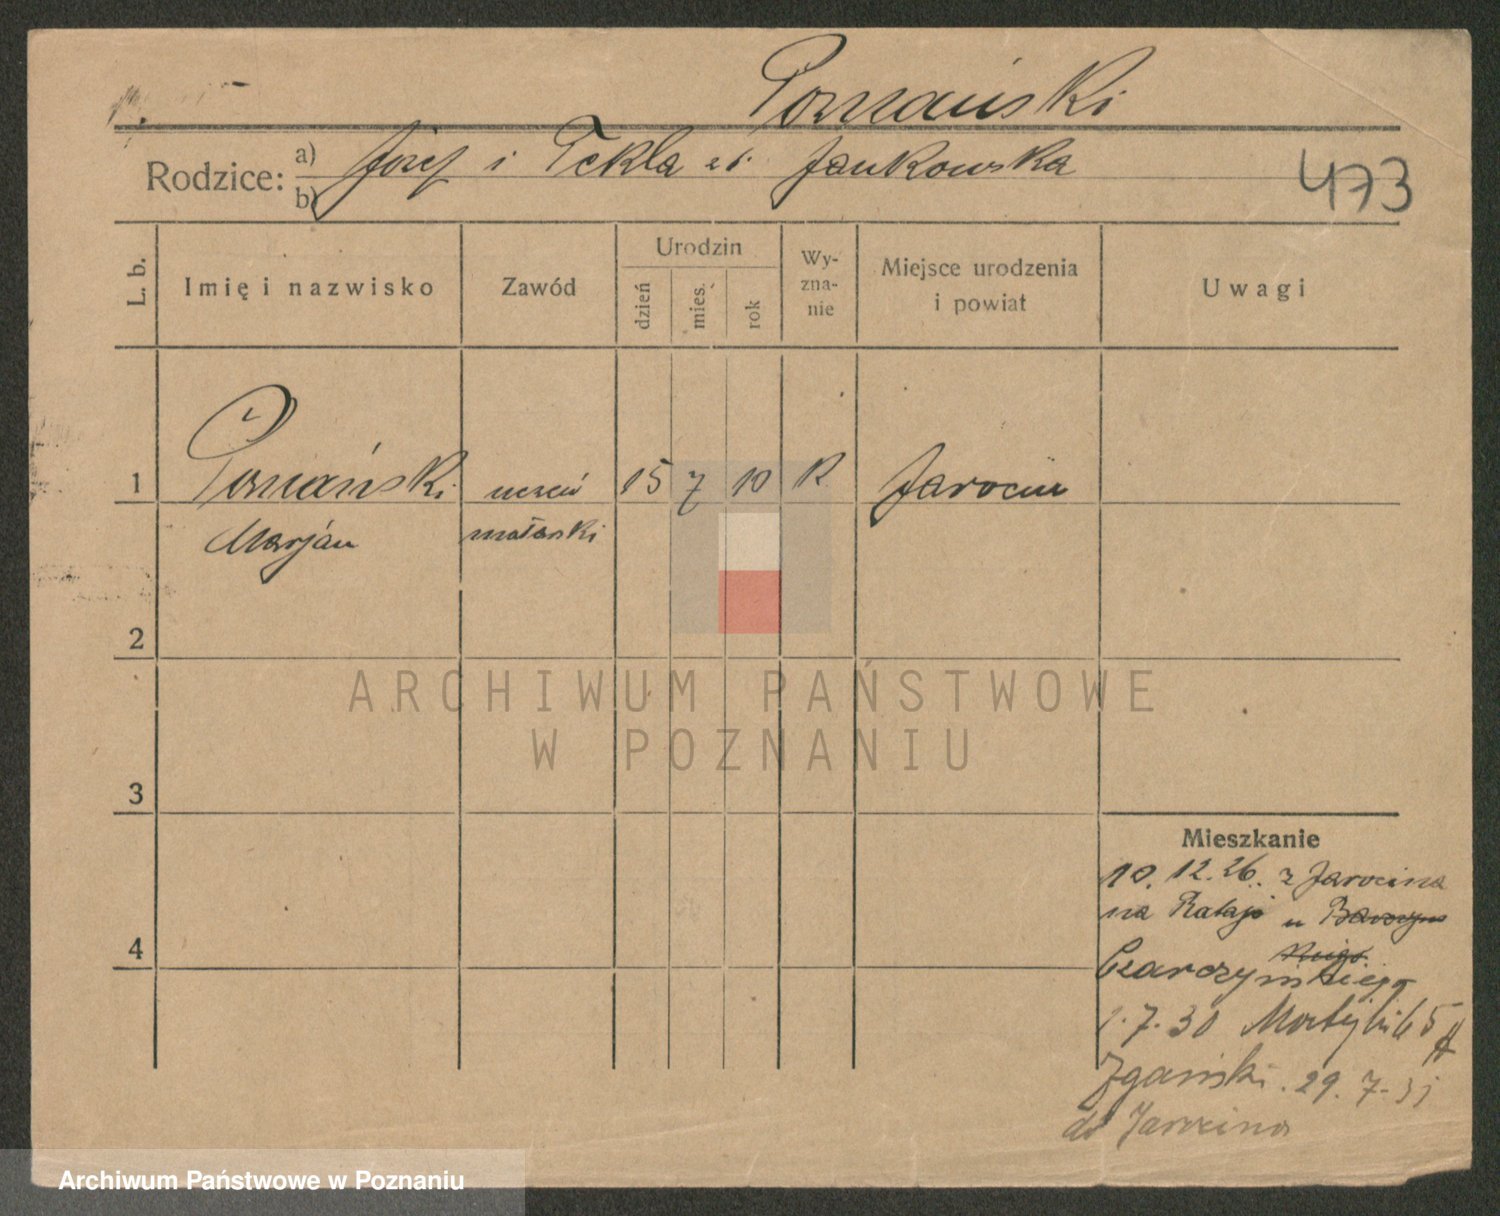 Poznański
Rodzice: a) Józef i Tekla z d. Jankowska
b)
473
L. b. Imię i nazwisko Zawód Urodzin dzień mies. rok Wyznanie Miejsce urodzenia i powiat Uwagi
1 Poznański uczeń 15 7 10 R Jarocin
Marjan malarski
2
3
4
Mieszkanie
10.12.26. z Jarocina
na Rataje u
Czarczyńskiego
1.7.30
Zgański. 29.7.31
do Jarocina
ARCHIWUM PAŃSTWOWE
W POZNANIU
Archiwum Państwowe w Poznaniu